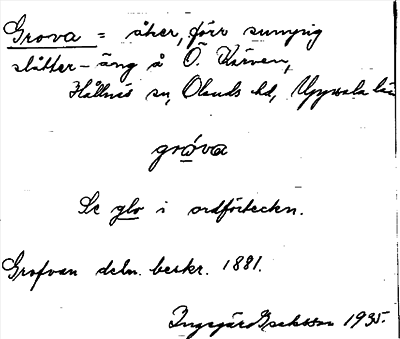 Grova = åker, förr sumpig
slåtter-äng å Ö. Kärven,
Hållnäs sn, Olands hd, Uppsala län
gróva
Se glo i ordförteckn.
Grofvan deln. beskr. 1881.
Ingegärd 1935.